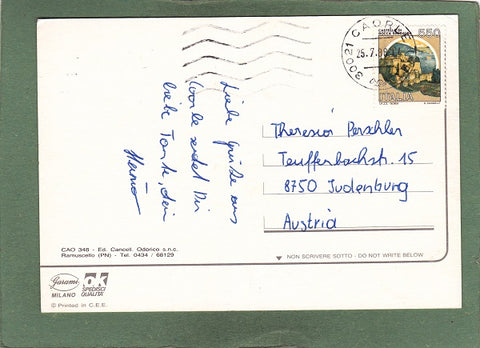 30021 CAORLE
25.7.
550
ITALIA
Liebe Grüße aus
Caorle sendet Dir
liebe Tante, dein
Theresia Perschler
Teuffenbachstr. 15
8750 Judenburg
Austria
CAO 348 - Ed. Cancell. Odorico s.n.c.
Ramuscello (PN) - Tel. 0434 / 68129
NON SCRIVERE SOTTO - DO NOT WRITE BELOW
Garami
MILANO
OK
SPEDISCI
QUALITA'
© Printed in C.E.E.